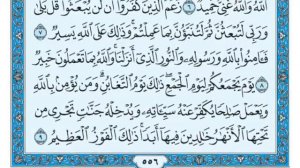 وَٱللَّهُ غَنِىٌّ حَمِيدٌ ٦ زَعَمَ ٱلَّذِينَ كَفَرُوٓا۟ أَن لَّن يُبْعَثُوا۟ قُلْ بَلَىٰ
وَرَبِّى لَتُبْعَثُنَّ ثُمَّ لَتُنَبَّؤُنَّ بِمَا عَمِلْتُمْ وَذَٰلِكَ عَلَى ٱللَّهِ يَسِيرٌ ٧
فَـَٔامِنُوا۟ بِٱللَّهِ وَرَسُولِهِۦ وَٱلنُّورِ ٱلَّذِىٓ أَنزَلْنَا وَٱللَّهُ بِمَا تَعْمَلُونَ خَبِيرٌ
٨ يَوْمَ يَجْمَعُكُمْ لِيَوْمِ ٱلْجَمْعِ ذَٰلِكَ يَوْمُ ٱلتَّغَابُنِ وَمَن يُؤْمِنۢ بِٱللَّهِ
وَيَعْمَلْ صَـٰلِحًا يُكَفِّرْ عَنْهُ سَيِّـَٔاتِهِۦ وَيُدْخِلْهُ جَنَّـٰتٍ تَجْرِى مِن
تَحْتِهَا ٱلْأَنْهَـٰرُ خَـٰلِدِينَ فِيهَآ أَبَدًا ذَٰلِكَ ٱلْفَوْزُ ٱلْعَظِيمُ ٩
٥٥٦